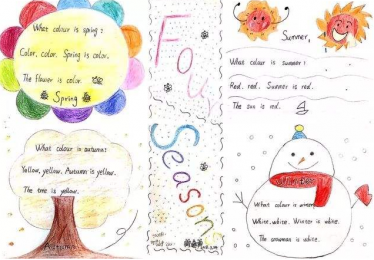 What colour is spring:
Color, color. Spring is color.
The flower is color.
Spring
Four
Seasons
Summer,
What colour is summer:
Red, red. Summer is red.
The sun is red.
What colour is autumn:
Yellow, yellow. Autumn is yellow.
The tree is yellow.
Autumn
What colour is winter
White, white. Winter is white.
The snowman is white.